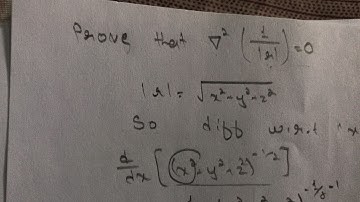 Prove that ∇² (1/|r|) = 0
|r| = √x²+y²+z²
So diff w.r.t
d/dx [(x²+y²+z²)^-1/2]